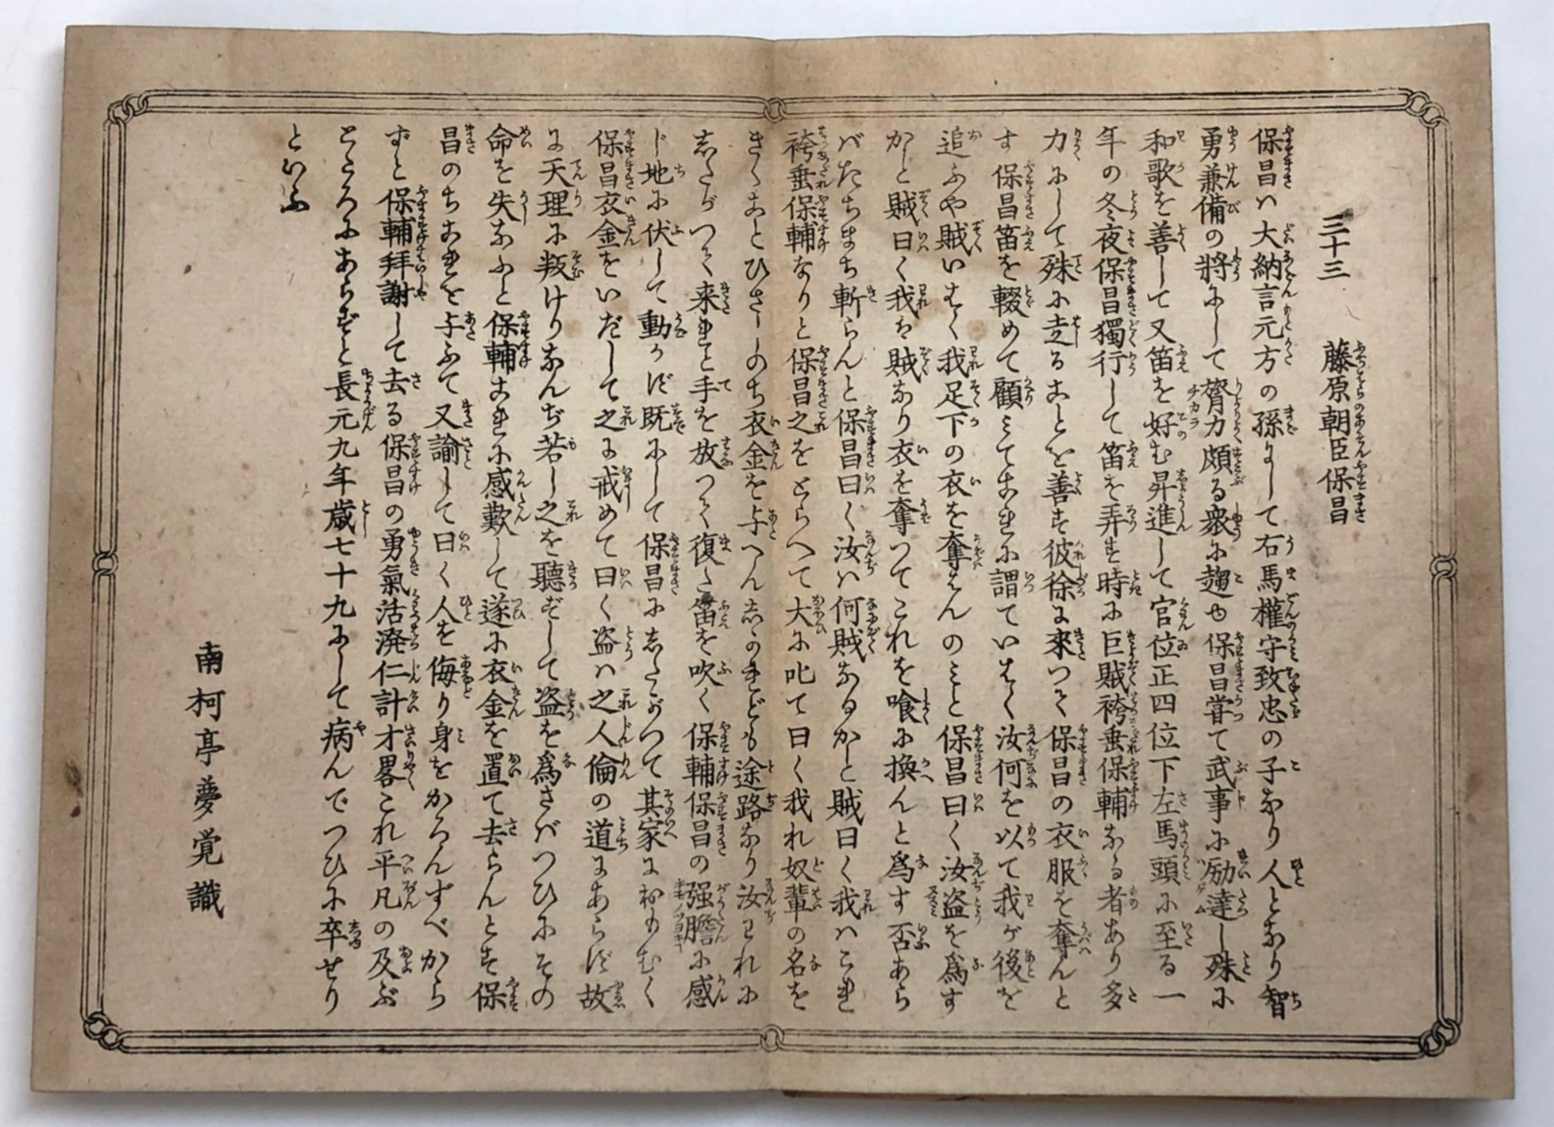 三十三　藤原朝臣保昌
保昌ハ大納言元方の孫にして右馬權守致忠の子なり人となり智
勇兼備の將にして膂力頗る衆に趐也保昌甞て武事に励達し殊に
和歌を善して又笛を好む昇進して官位正四位下左馬頭に至る一
年の冬夜保昌獨行して笛を弄す時に巨賊袴垂保輔なる者あり多
力にして殊に走ることを善す彼徐に来つて保昌の衣服を奪んと
す保昌笛を輟めて顧ミてこれに謂ていはく汝何を以て我が後を
追ふや賊いはく我足下の衣を奪はんのミと保昌曰く汝盗を爲す
かと賊曰く我は賊なり衣を奪つてこれを喰に換んと爲す否あら
バたちまち斬らんと保昌曰く汝ハ何賊なるかと賊曰く我ハこれ
袴垂保輔なりと保昌之をとらへて大に叱て曰く我れ奴輩の名を
きくことひさしのち衣金を与へんしかれども途路なり汝われに
したがつて来れと手を放つて復た笛を吹く保輔保昌の强膽に感
じ地に伏して動かず既にして保昌にしたがつて其家におもむく
保昌衣金をいだして之に戒めて曰く盗ハ之人倫の道にあらず故
に天理に叛けりなんぢ若し之を聽ずして盗を爲さバつひにその
命を失なふと保輔これに感歎して遂に衣金を置て去らんとす保
昌のちこれを与ふて又諭して曰く人を侮り身をかろんずべから
ずと保輔拜謝して去る保昌の勇氣活溌仁計才畧これ平凡の及ぶ
ところにあらずと長元九年歳七十九にして病んでつひに卒せり
といふ
南柯亭夢覚識